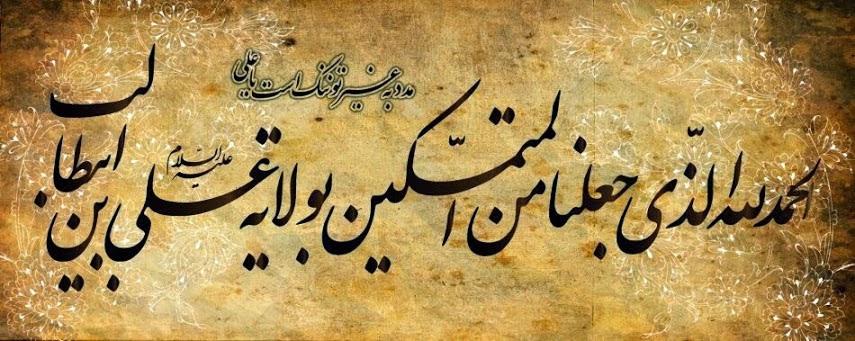 مدد به غیر تو ننگ است یا علی
الحمد لله الّذی جعلنا من المتمسّکین بولایة علی بن ابیطالب
علیه السلام